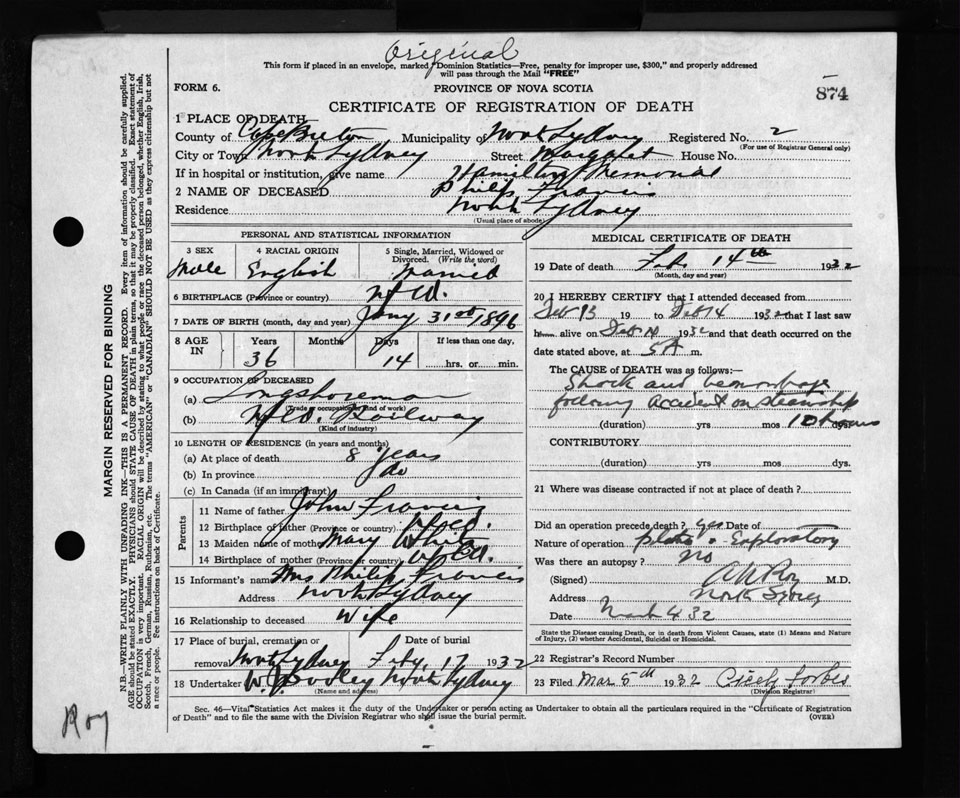 Original
This form if placed in an envelope, marked "Dominion Statistics—Free, penalty for improper use, $300," and properly addressed
will pass through the Mail "FREE"
FORM 6.
PROVINCE OF NOVA SCOTIA
874
CERTIFICATE OF REGISTRATION OF DEATH
1 PLACE OF DEATH
County of Cape Breton Municipality of North Sydney Registered No. 2
(For use of Registrar General only)
City or Town North Sydney Street Margaret House No.
If in hospital or institution, give name Hamilton Memorial
2 NAME OF DECEASED Philip Francis
Residence North Sydney
(Usual place of abode)
PERSONAL AND STATISTICAL INFORMATION
3 SEX Male
4 RACIAL ORIGIN English
5 Single, Married, Widowed or Divorced. (Write the word) Married
6 BIRTHPLACE (Province or country) Nfld.
7 DATE OF BIRTH (month, day and year) Jany 31st 1896
8 AGE IN Years 36 Months Days 14 If less than one day, hrs. or min.
9 OCCUPATION OF DECEASED
(a) Longshoreman
(Trade or occupation or kind of work)
(b) Nfld. Railway
(Kind of industry)
10 LENGTH OF RESIDENCE (in years and months)
(a) At place of death 8 years
(b) In province do
(c) In Canada (if an immigrant)
Parents
11 Name of father John Francis
12 Birthplace of father (Province or country) Nfld.
13 Maiden name of mother Mary White
14 Birthplace of mother (Province or country) Nfld.
15 Informant's name Mrs Philip Francis
Address North Sydney
16 Relationship to deceased Wife
17 Place of burial, cremation or removal North Sydney Date of burial Feby. 17 1932
18 Undertaker W. Dooley North Sydney
(Name and address)
MEDICAL CERTIFICATE OF DEATH
19 Date of death Feb 14th 1932
(Month, day and year)
20 I HEREBY CERTIFY that I attended deceased from
Feb 13 19 to Feb 14 1932 that I last saw
him alive on Feb 14 1932 and that death occurred on the
date stated above, at 5 A m.
The CAUSE of DEATH was as follows:—
Shock and hemorrhage
following accident on steamship
(duration) yrs mos 10 hours
CONTRIBUTORY
(duration) yrs. mos. dys.
21 Where was disease contracted if not at place of death?
Did an operation precede death? yes Date of
Nature of operation Exploratory
Was there an autopsy? No
(Signed) Roy M.D.
Address North Sydney
Date March 4 32
State the Disease causing Death, or in death from Violent Causes, state (1) Means and Nature
of Injury, (2) whether Accidental, Suicidal or Homicidal.
22 Registrar's Record Number
23 Filed Mar 5th 1932 Cicely Forbes
(Division Registrar)
Sec. 46—Vital Statistics Act makes it the duty of the Undertaker or person acting as Undertaker to obtain all the particulars required in the "Certificate of Registration
of Death" and to file the same with the Division Registrar who shall issue the burial permit.
(OVER)
MARGIN RESERVED FOR BINDING
N.B.—WRITE PLAINLY WITH UNFADING INK—THIS IS A PERMANENT RECORD. Every item of information should be carefully supplied.
AGE should be stated EXACTLY. PHYSICIANS should STATE CAUSE OF DEATH in plain terms, so that it may be properly classified. Exact statement of
OCCUPATION is very important. RACIAL ORIGIN will be described by stating to what people or race the deceased person belonged, whether English, Irish,
Scotch, French, German, Russian, Ruthenian, etc. The terms "AMERICAN" or "CANADIAN" SHOULD NOT BE USED as they express citizenship but not
a race or people. See instructions on back of Certificate.
Roy